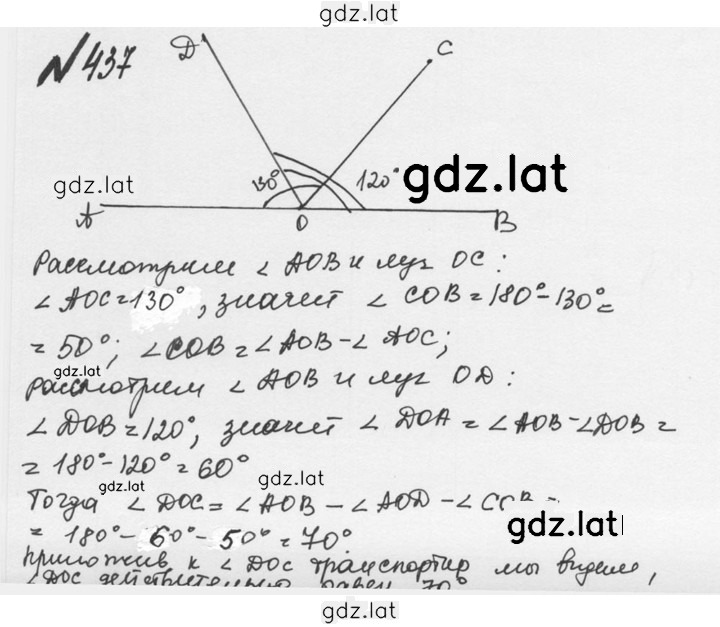 gdz.lat
№437
D
C
130°
120°
gdz.lat
gdz.lat
A
O
B
Рассмотрим ∠ AOB и луч OC:
∠ AOC=130°, значит ∠ COB=180°-130°=
=50°; ∠COB=∠AOB-∠AOC;
gdz.lat
рассмотрим ∠ AOB и луч OD:
∠ DOB=120°, значит ∠ DOA=∠AOB-∠DOB=
=180°-120°=60°
gdz.lat
gdz.lat
Тогда ∠ DOC=∠AOB-∠AOD-∠COB=
=180°-60°-50°=70°
gdz.lat
приложив к ∠ DOC транспортир мы видим,
∠DOC действительно равен 70°
gdz.lat